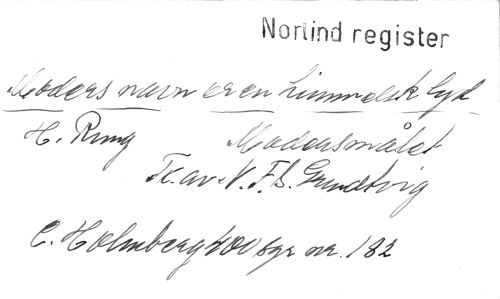 Norlind register
Moders navn er en himmelsk lyd
H. Rung Modersmålet
Tc. av N. F. S. Grundtvig
C. Holmberg 400 sgr nr. 182